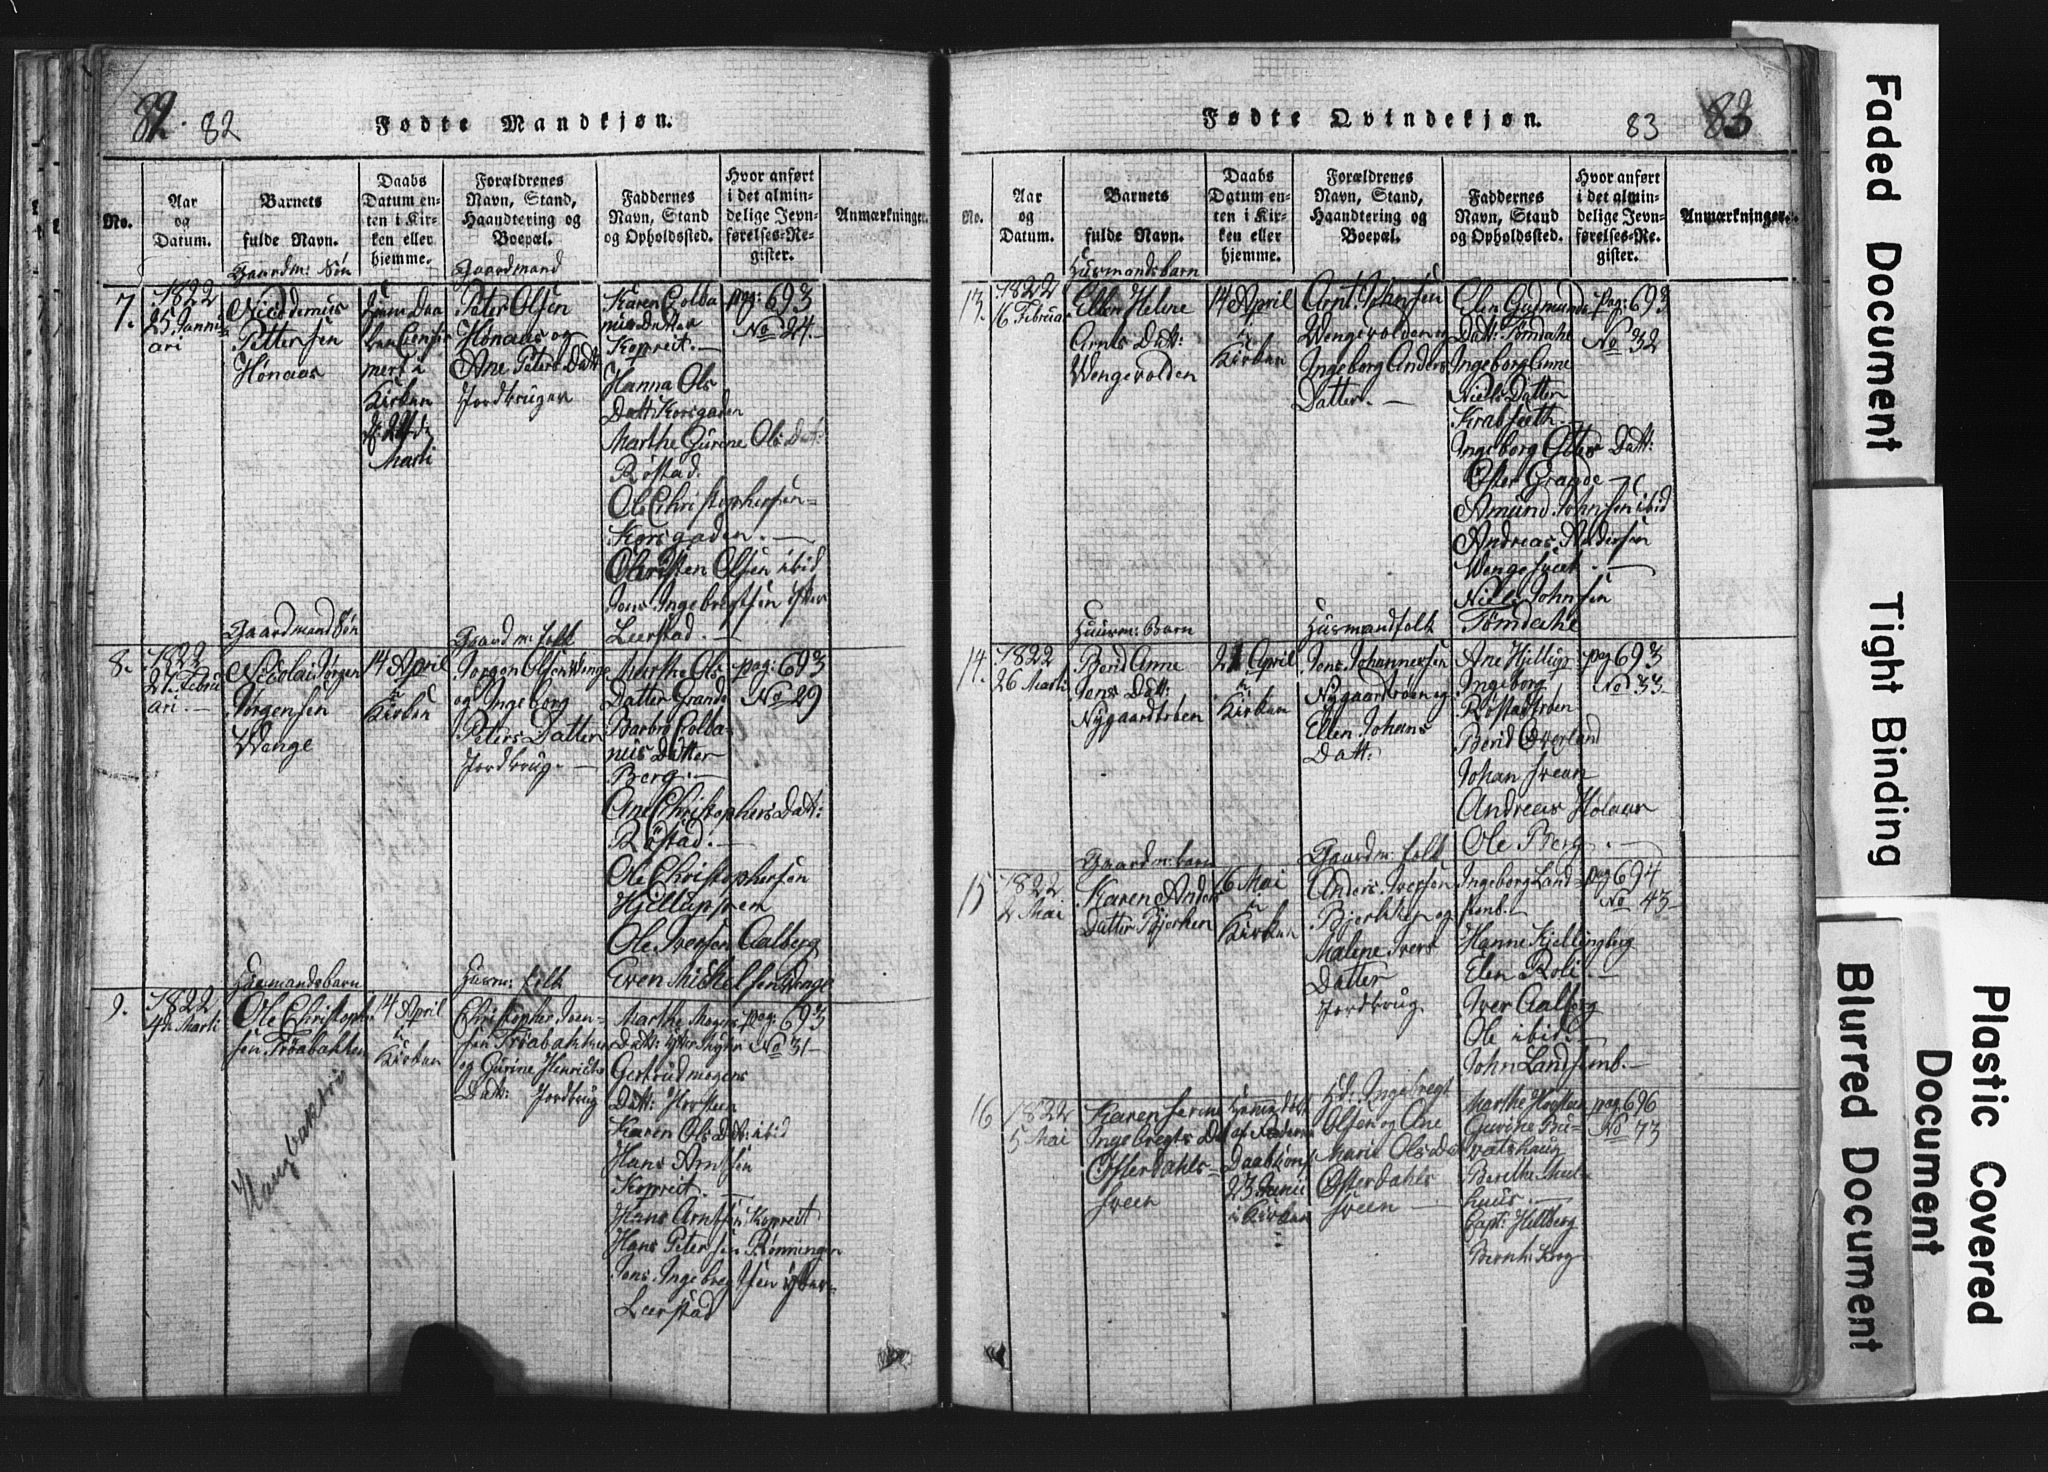 82. 82
Fødte Mandkjøn.
No.
Aar
og
Datum.
Barnets
fulde Navn.
Daabs
Datum en-
ten i Kir-
ken eller
hjemme.
Forældrenes
Navn, Stand,
Haandtering og
Boepæl.
Faddernes
Navn, Stand
og Opholdssted.
Hvor anført
i det almin-
delige Jevn-
førelses-Re-
gister.
Anmærkninger.
7.
1822
25 Janu-
ari
Gaardm: Søn
Nicodemus
Pettersen
Hønaas
i
Kirken
Marti
Gaardmand
Peter Olsen
Hønaas og
Ane Peters Datt
Jordbruger
Karen Colba
nus Datter
Kopreit. —
Hanna Ols
Datt Korsgaden
Marthe Gurene Ols Dat:
Røstad.
Ole Christophersen
Korsgaden. —
Christen Olsen ibid
Jens Ingebrigtsen
Leerstad. —
pag: 693
No 24.
8.
1822
27 Febru
ari. —
Gaardmand Søn
Nicolai Jørgen
Jørgensen
Wenge
14 April
i
Kirken
Gaardm: Folk
Jørgen Olsen Wenge
og Ingeborg
Peters Datter
Jordbrug. —
Marthe Ols
Datter Grande
Barbro Colba-
nus Datter
Berg. —
Ane Christophers Datt:
Røstad. —
Ole Christophersen
Hjellupsrem
Ole Iversen Aalberg
Even Michelsen Wenge
pag: 693
No 29
9.
1822
4de Marti
Husmandsbarn
Ole Christoph:
sen Trøabakken
14 April
i
Kirken
Husm: Folk
Christopher Iven-
sen Trøabakken
og Gurine Henrichs
Datt: Jordbrug
Marthe Mogens
Datt:
Gertrud Mogens
Datt: Hoosten
Karen Ols Dt: ibid
Hans Arntsen
Kopreit.
Hans Arntsen Kopreit
Hans Petersen Rønningen
Jens Ingebregtsen ytter-
Leerstad
pag: 693
No 31
83 83
Fødte Qvindekjøn.
No.
Aar
og
Datum.
Barnets
fulde Navn.
Daabs
Datum en-
ten i Kir-
ken eller
hjemme.
Forældrenes
Navn, Stand,
Haandtering og
Boepæl.
Faddernes
Navn, Stand
og Opholdssted.
Hvor anført
i det almin-
delige Jevn-
førelses-Re-
gister.
Anmærkninger.
13.
1822
16 Februa
Husmandsbarn
Ellen Helene
Arnts Datt:
Wengevolden
14 April
i
Kirken
Arnt Johnsen
Wengevolden og
Ingeborg Anders
Datter. —
Elen Gudmunds
Datt: Tømdahl
Ingeborg Anne
Niels Datter
Krabseth
Ingeborg Datt:
Øster Grande —
Amund Johnsen ibid
Andreas Andersen
Niels Johnsen
Tømdahl
pag: 693
No 32
14.
1822
26 Marti
Huusm: Barn
Berid Anne
Jens Datt:
Nygaardtrøen
21 April
i
Kirken
Husmandfolk
Jens Johannessen
Nygaardtrøen og
Ellen Johans
Datt:
Ane Hjellup
Ingeborg
Røstadtrøen
Berid Overland
Johan Sveen
Andreas Holaas
Ole Berg
pag 693
No 33
15
1822
2 Mai
Gaardm: Barn
Karen Anders
Datter Bjerken
16 Mai
i
Kirken
Gaardm: Folk
Anders Iversen
Bjerken og
Malene Ivers
Datter
Jordbrug
Ingeborg Land-
semb. —
Hanne Kjellingberg
Elen Roli —
Iver Aalberg
Ole ibid. —
John Landsemb. —
pag 694
No 43
16
1822
5 Mai
Karen Serine
Ingebregts Dat
Østerdahls-
sveen
23 Junii
i Kirken
Hd: Ingebregt
Olsen og Ane
Marie Ols Dat
Østerdahls
sveen —
Marthe Hoosteen
Gurine
Berethe
Capt: Hellberg
Bernt Krog
pag 696
No 73
Faded Document
Tight Binding
Blurred Document
Plastic Covered
Document